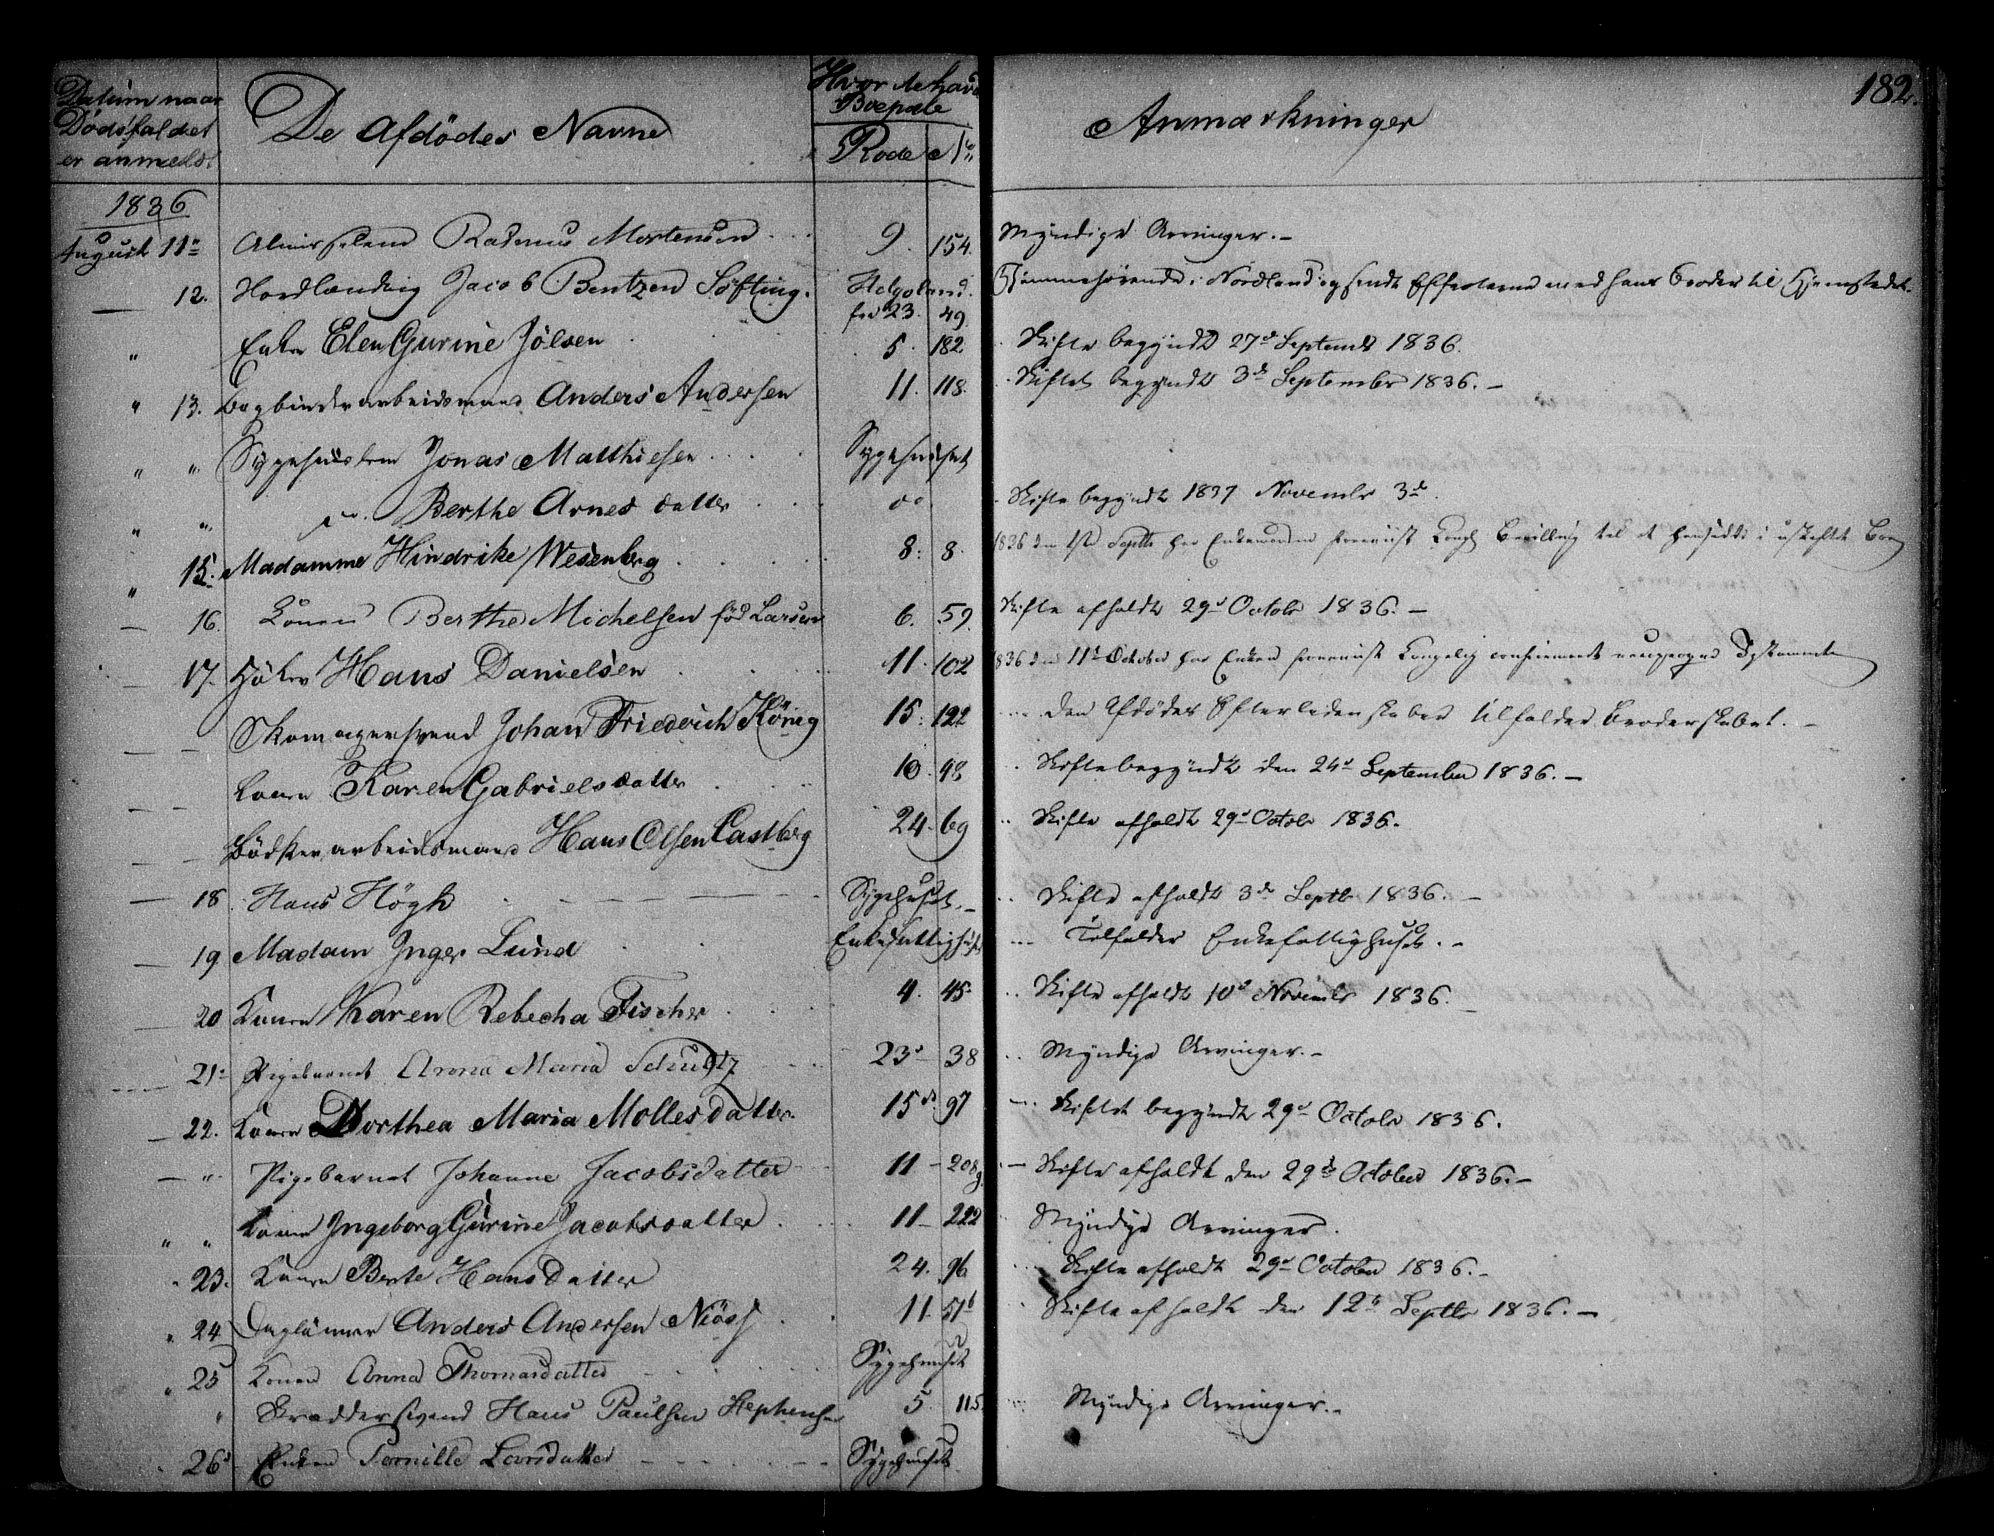 Datum naar
Dødsfaldet
er anmeldt
De Afdödes Navne
Hvor de havde
Boepæle
Rode No
Anmærkninger
182.
1836
August 11te Almisselem Rasmus Mortensen 9. 154. Myndige Arvinger.
12. Nordlænding Jacob Bentzen Söfting. Helgoland. Hjemmehørende i Nordland og sendt Effecterne med hans Broder til Hjemstedet.
23. 49.
" Enken Elen Gurine Jölsen 5. 182 Skifte begyndt 27de Septembr 1836.
" 13. Bogbinderarbeidsmand Anders Andersen 11. 118. Skiftet begyndt 3de September 1836.
" " Sygehuuslem Jonas Matthiesen Sygehuuset
" " do. Berthe Arnesdatter do Skifte begyndt 1837 Novembr 3de.
" 15. Madamme Hindrike Wesenberg 8. 8. 1836 den Septbr har Enkemanden foreviist Kongl Bevilling til at hensidde i uskiftet Boe
16. Konen Berthe Michelsen föd Larsen 6. 59. Skifte afholdt 29de Octobr 1836.
17. Höker Hans Danielsen 11. 102 1836 den 11te October har Enken foreviist Kongelig confirmeret Testamente
Skomagersvend Johan Friedrich König 15. 122 Den Afdödes Efterladenskaber tilfalder Broderskabet.
Konen Karen Gabrielsdatter 10. 48 Skifte begyndt den 24de September 1836.
Bödkerarbeidsmand Hans Olsen Castberg 24. 69 Skifte afholdt 29de Octobr 1836.
18. Hans Högh Sygehuset. Skifte afholdt 3de Septbr 1836.
19. Madam Inger Lund Enkefattighuset Tilfalder Enkefattighuset.
20 Konen Karen Rebecha Fischer 4. 45. Skifte afholdt 10de Novembr 1836.
21. Pigebarnet Anna Maria Schultz 23de 38 Myndige Arvinger.
22. Konen Dorthea Maria Mollesdatter 15de 97 Skiftet begyndt 29de Octobr 1836.
" Pigebarnet Johanne Jacobsdatter 11 208 Skifte afholdt den 29de October 1836.
" " Konen Ingeborg Gurine Jacobsdatter 11 222 Myndige Arvinger.
23. Konen Berte Hansdatter 24. 96 Skifte afholdt 29de October 1836.
" 24 Daglönner Anders Andersen Niöss 11. 51b Skifte afholdt den 12te Septbr 1836.
" 25 Konen Anna Thomasdatter Sygehuuset
" Skræddersvend Hans Paulsen 5. 115. Myndige Arvinger.
26de Enken Pernille Larsdatter Sygehuuset